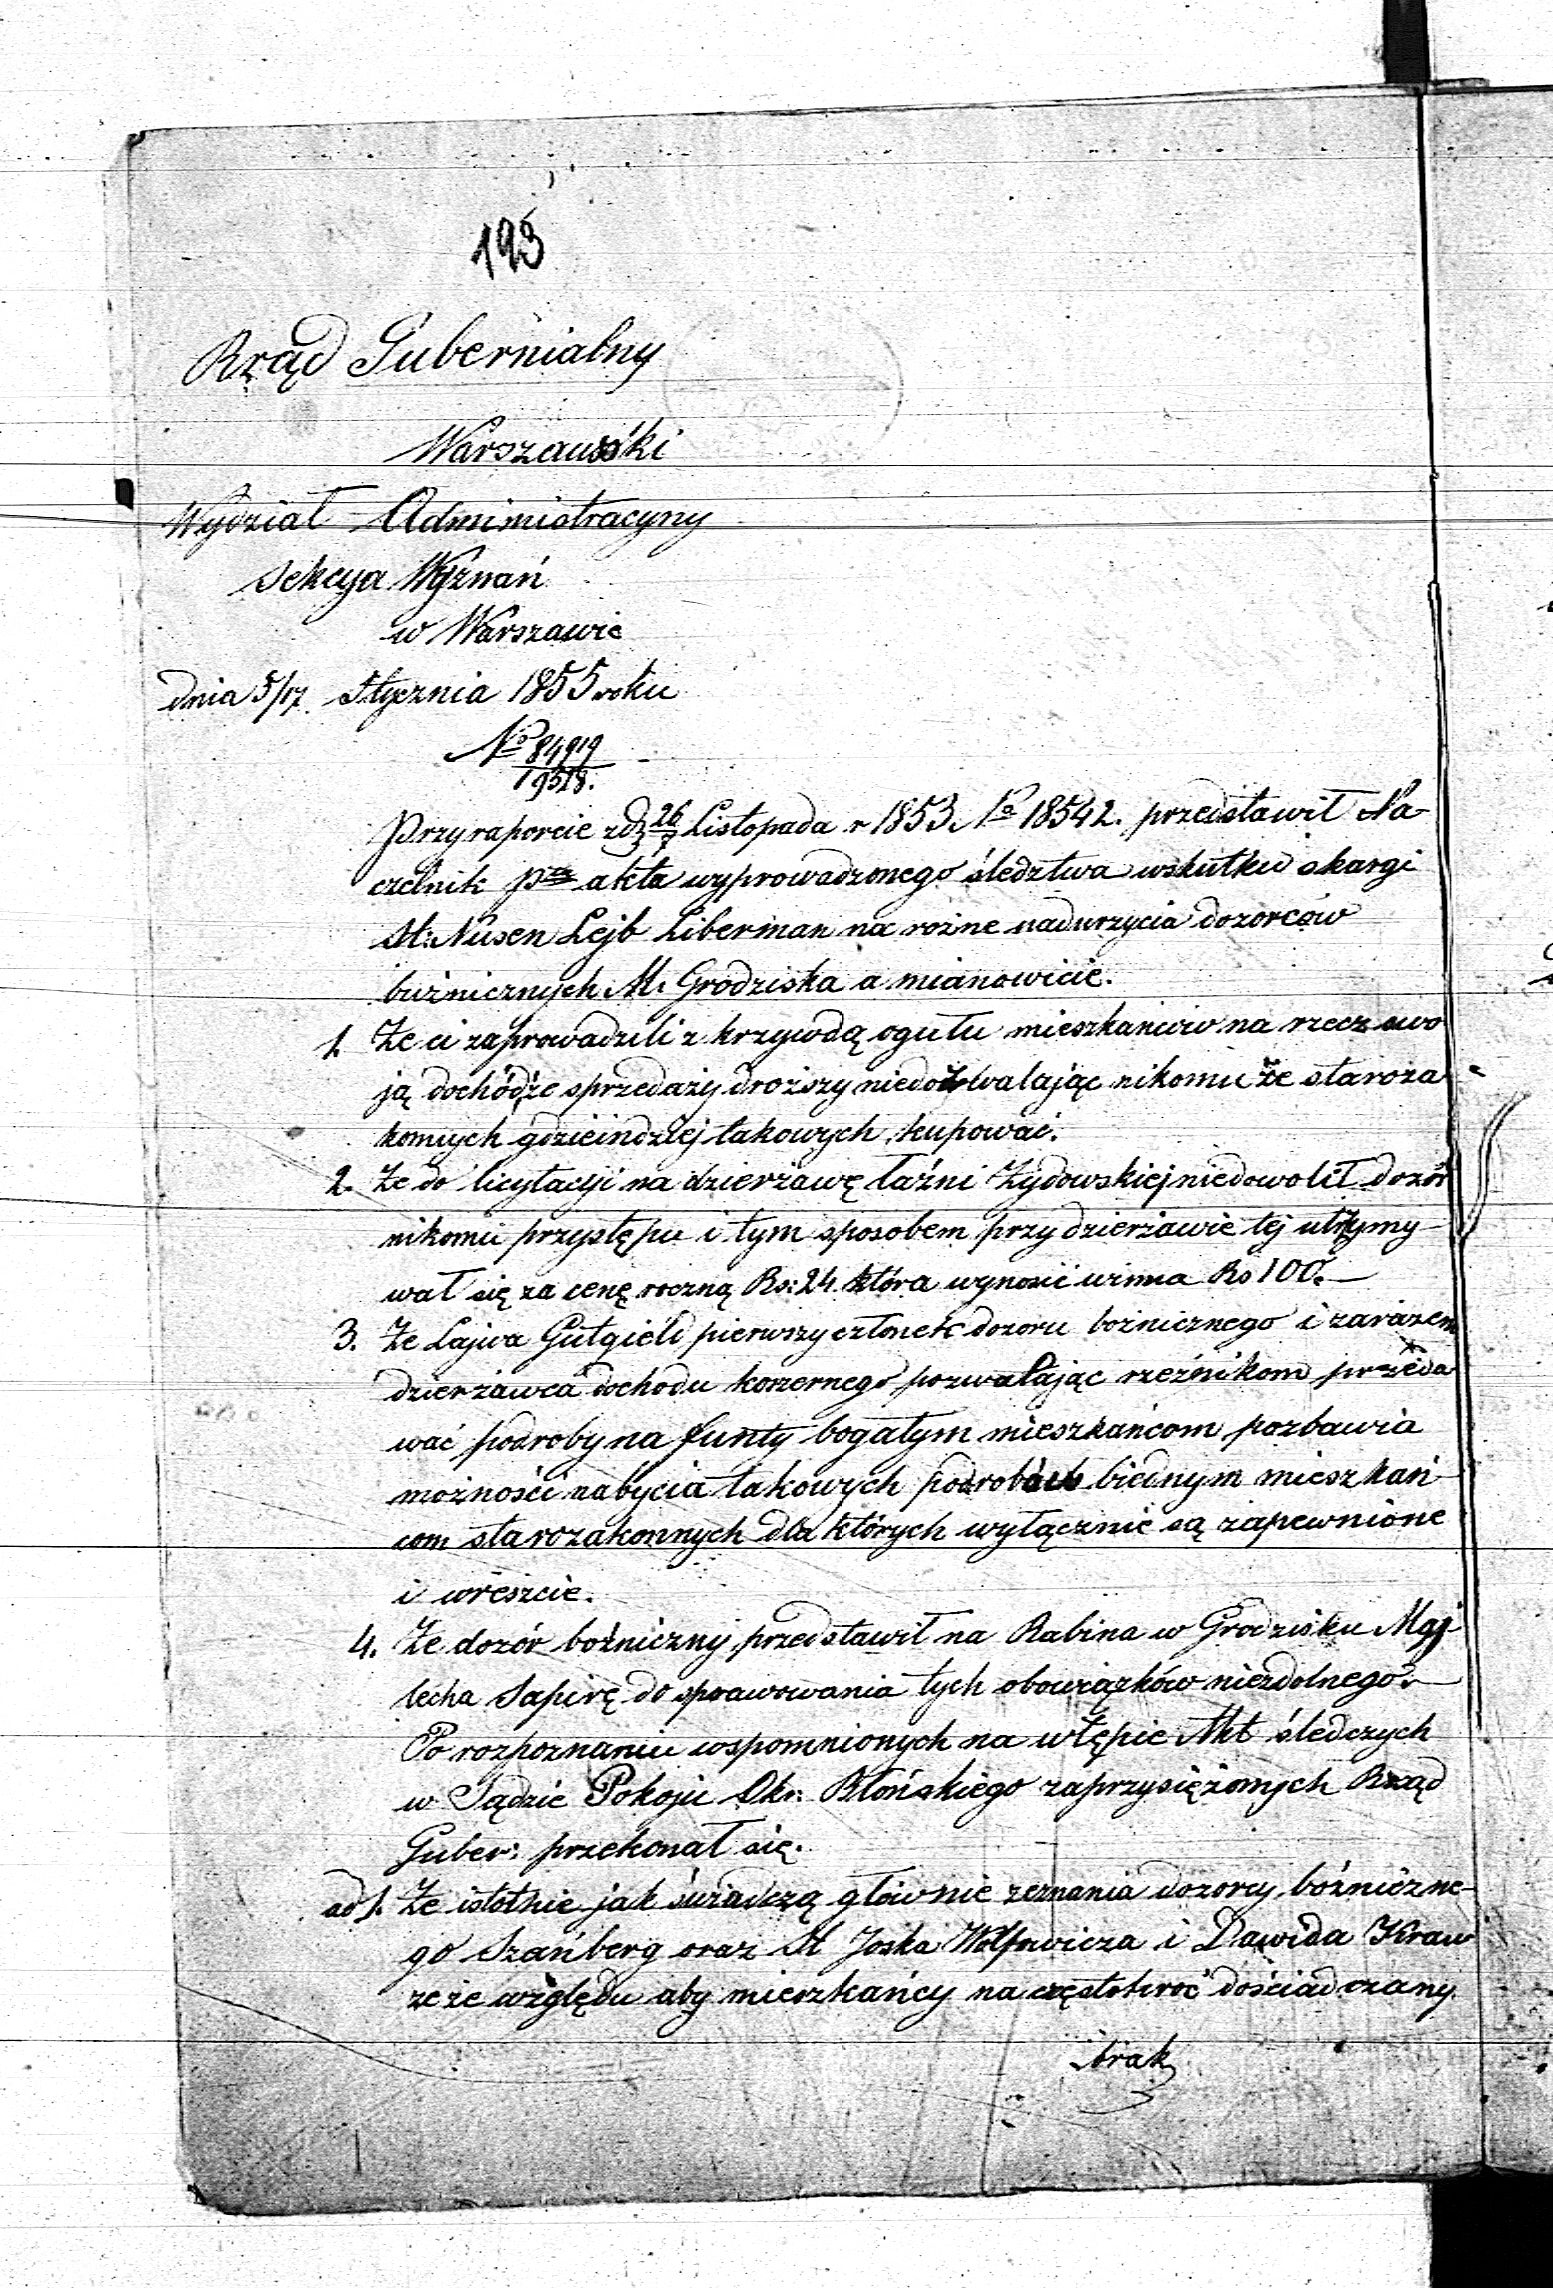 193
Rząd Gubernialny
Warszawski
Wydział Administracyny
Sekcya Wyznań
w Warszawie
dnia 5/17 Stycznia 1855 roku
No 84919
19518.
Przy raporcie zd 26/7 Listopada r 1853 No 18542. przedstawił Na-
czelnik Ptu akta wyprowadzonego śledztwa wskutku skargi
St: Nusen Lejb Liberman na rożne nadurzycia dozorców
bużnicznych M. Grodziska a mianowicie.
1. Że ci zaprowadzili z krzywdą ogułu mieszkańców na rzecz swo
ją dochódźe sprzedaży droższy niedozwalając nikomu że staroza-
konnych gdzieindziej takowych kupować.
2. Że do licytacyi na dzierżawę łaźni Żydowskiej niedowolił dozór
nikomu przystępu i tym sposobem przy dzierżawie tej utrzymy-
wał się za cenę roczną Rs: 24 która wynosić winna Rs 100.—
3. Że Lajwa Gutgield pierwszy członek dozoru bożnicznego i zarazem
dzierżawca dochodu koszernego pozwalając rzeźnikom przeda
wać podroby na funty bogatym mieszkańcom pozbawia
możności nabycia takowych podrobów biednym mieszkań
com starozakonnych dla których wyłącznie są zapewnione
i wreszcie.
4. Że dozór bożniczny przedstawił na Rabina w Grodzisku Maj-
lecha Sapirę do sprawowania tych obowiązków niezdolnego.—
Po rozpoznaniu wspomnionych na wstępie Akt śledczych
w Sądzie Pokoju Okr: Błońskiego zaprzysiężonych Rząd
Guber: przekonał się.
ad 1. Że istotnie jak świadczą głównie zeznania dozorcy bóżniczne-
go Szańberg oraz St Joska Wolfowicza i Dawida Kraw
ze że względu aby mieszkańcy na częstokroć dościadczany
brak